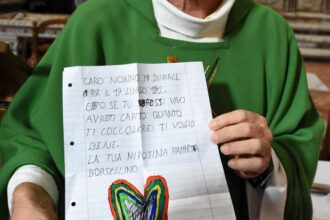 CARO NONNO MI DISPIACE
PER IL 19 LUGLIO
CAPO SE TU FOSSI VIVO
AVRESTI CAPITO QUANTO
TI COCCOLEREI TI VOGLIO
BENE.
LA TUA NIPOTINA
BORSELLINO